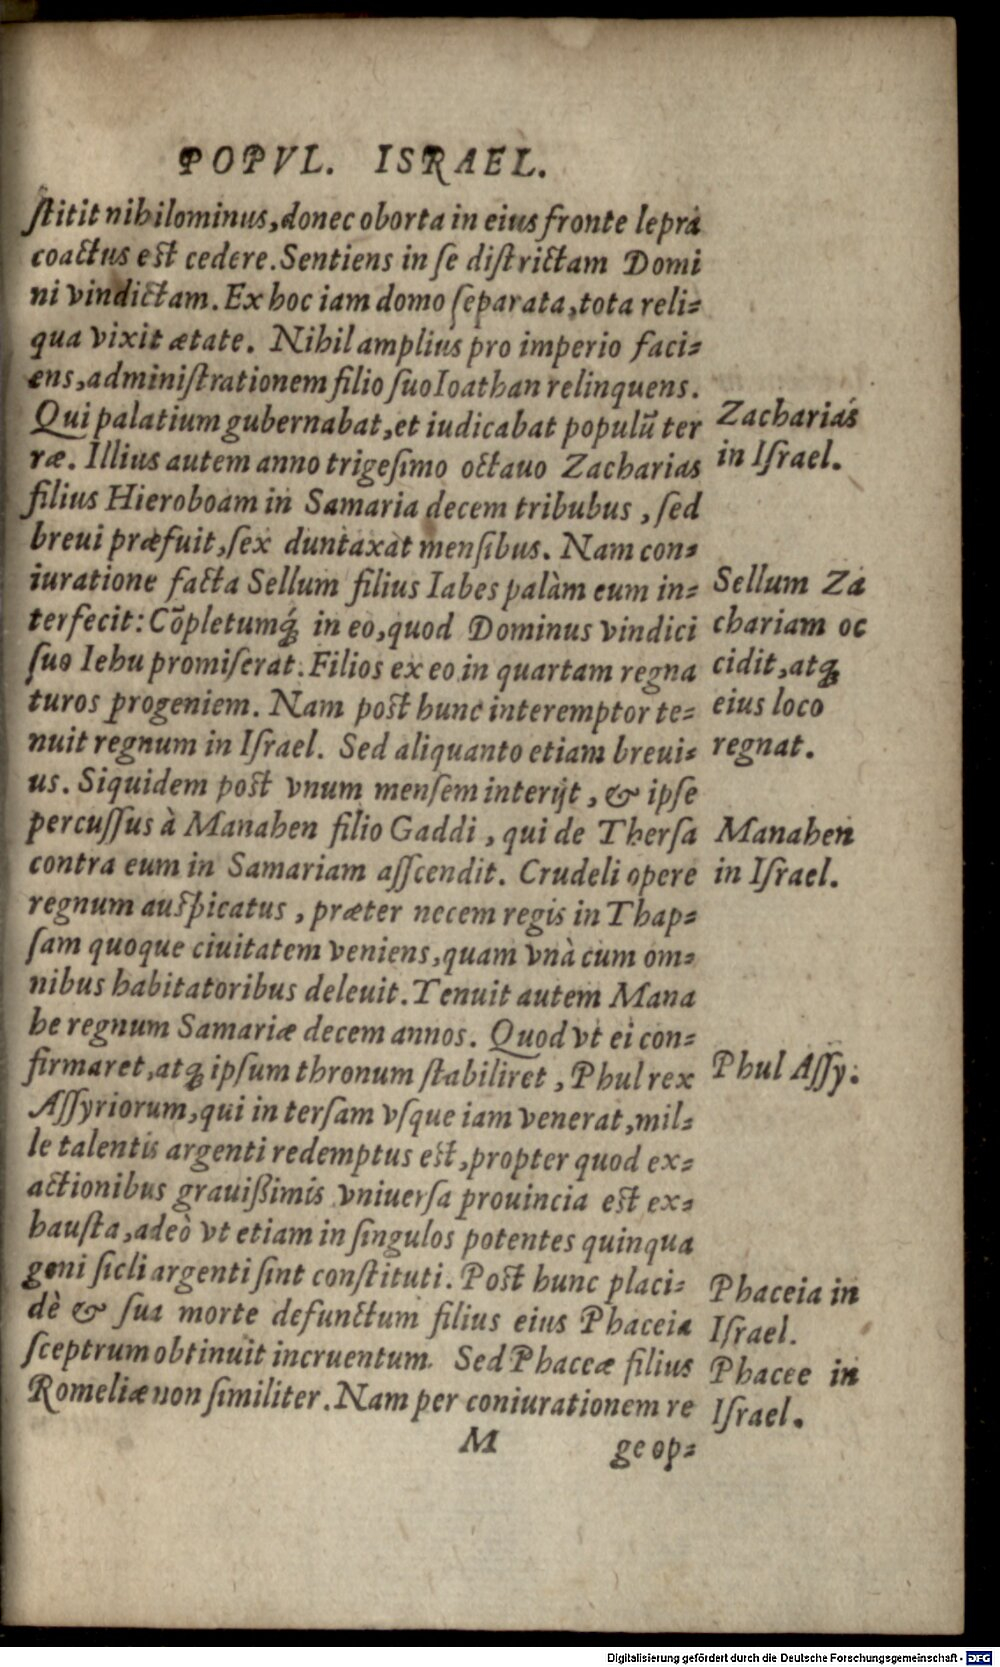 POPVL. ISRAEL.
ſtitit nihilominus, donec oborta in eius fronte lepra
coactus est cedere. Sentiens in ſe diſtrictam Domi
ni vindictam. Ex hoc iam domo ſeparata, tota reli-
qua vixit ætate. Nihil amplius pro imperio faci-
ens, adminiſtrationem filio ſuo Ioathan relinquens.
Qui palatium gubernabat, et iudicabat populū ter
ræ. Illius autem anno trigeſimo octauo Zacharias
filius Hieroboam in Samaria decem tribubus, ſed
breui præfuit, ſex duntaxat menſibus. Nam con-
iuratione facta Sellum filius Iabes palàm eum in-
terfecit: Cōpletumq́; in eo, quod Dominus vindici
ſuo Iehu promiſerat. Filios ex eo in quartam regna
turos progeniem. Nam post hunc interemptor te-
nuit regnum in Iſrael. Sed aliquanto etiam breui-
us. Siquidem post vnum menſem interijt, & ipſe
percuſſus à Manahen filio Gaddi, qui de Therſa
contra eum in Samariam aſſcendit. Crudeli opere
regnum auſpicatus, præter necem regis in Thap-
ſam quoque ciuitatem veniens, quam vnà cum om-
nibus habitatoribus deleuit. Tenuit autem Mana
he regnum Samariæ decem annos. Quod vt ei con-
firmaret, atq; ipſum thronum ſtabiliret, Phul rex
Aſſyriorum, qui in terſam vſque iam venerat, mil-
le talentis argenti redemptus est, propter quod ex-
actionibus grauißimis vniuerſa prouincia est ex-
hauſta, adeò vt etiam in ſingulos potentes quinqua
geni ſicli argenti ſint conſtituti. Post hunc placi-
dè & ſua morte defunctum filius eius Phaceia
ſceptrum obtinuit incruentum. Sed Phaceæ filius
Romeliæ non ſimiliter. Nam per coniurationem re
M ge op-
Zacharias
in Iſrael.
Sellum Za
chariam oc
cidit, atq;
eius loco
regnat.
Manahen
in Iſrael.
Phul Aſſy.
Phaceia in
Iſrael.
Phacee in
Iſrael.
Digitalisierung gefördert durch die Deutsche Forschungsgemeinschaft - DFG